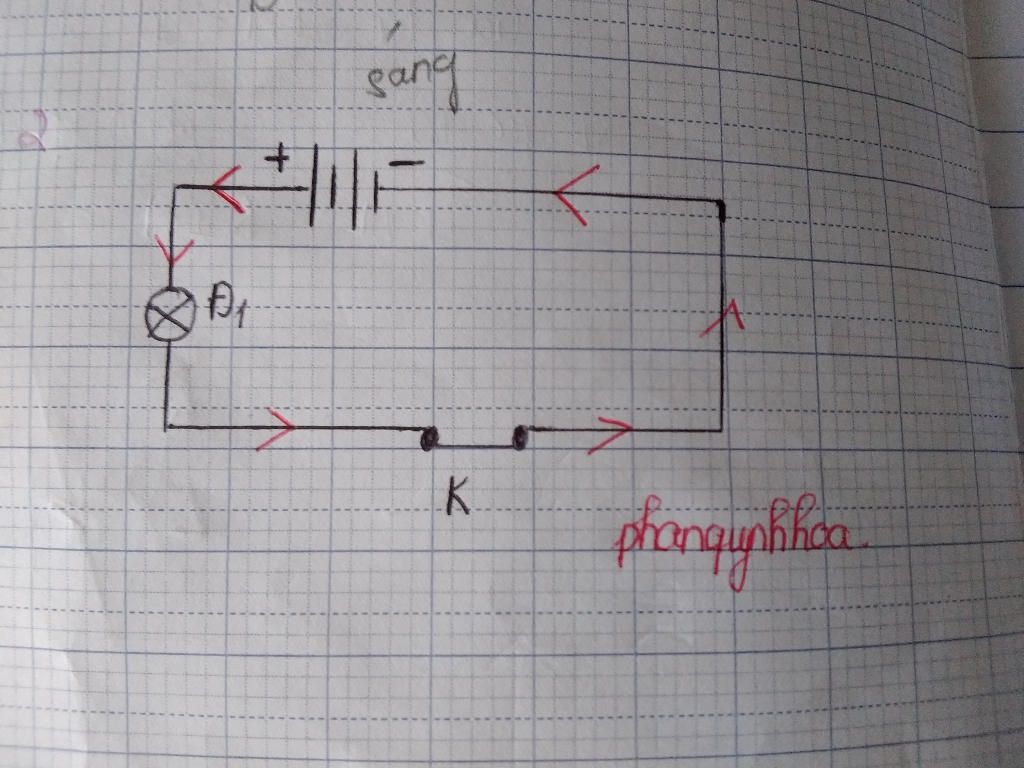 sáng
2
+ −
Đ1
K
phanquynhhoa.